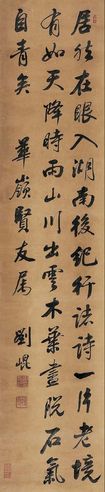 居然在眼入湖南後紀行諸詩一片老境
有如天降時雨山川出雲木葉盡脫石氣
自青矣 華嶺賢友屬 劉崐